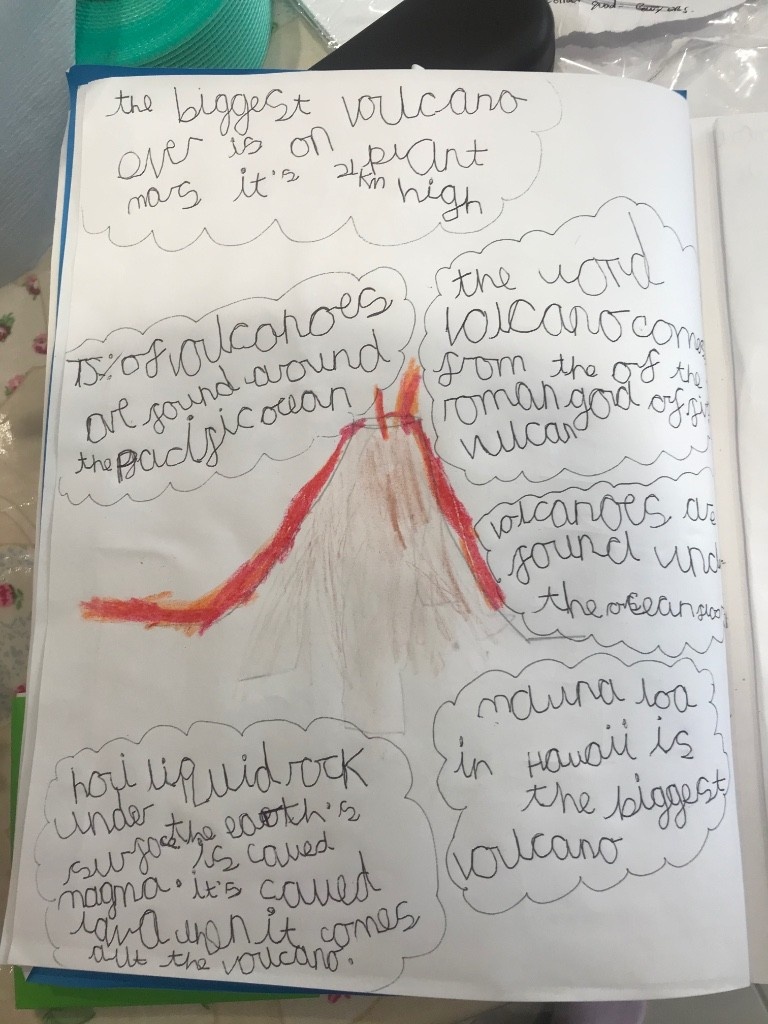 good
the biggest voulcano
over is on plant
mars it's 21km high
75% of voulcanoes
are found around
the pacific ocean
the word
volcano comes
from the of the
roman god of fir
vulcan
volcanoes are
found und
the ocean floo
mauna loa
in Hawaii is
the biggest
voulcano
hot liquid rock
under the earth's
surface is called
magma. it's called
lava when it comes
out the voulcano.